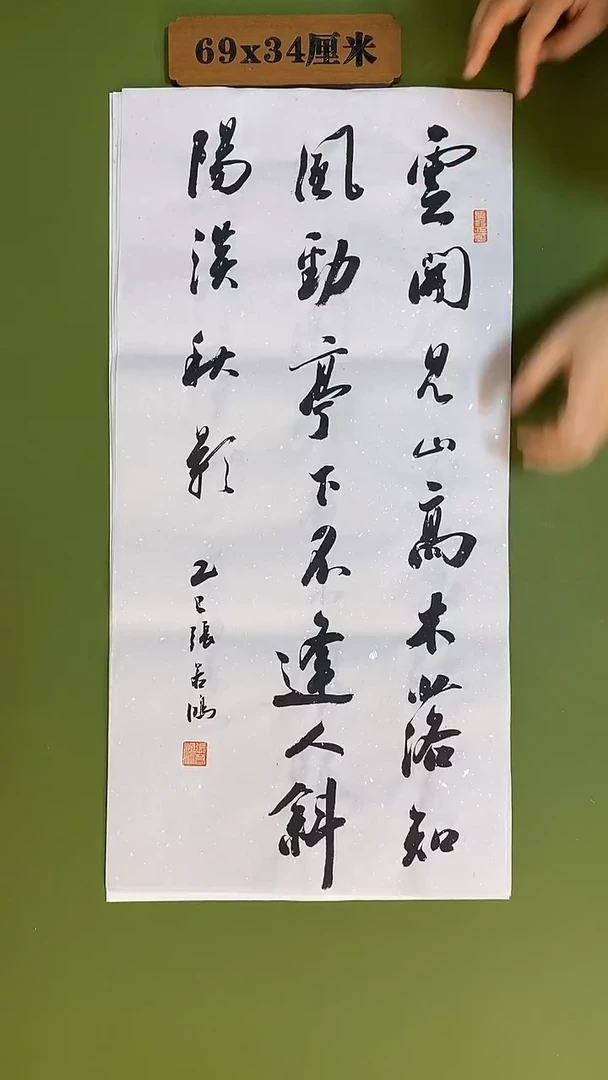 69x34厘米
雲開見山高木落知
風勁亭下不逢人斜
陽淡秋影
乙巳張若鴻